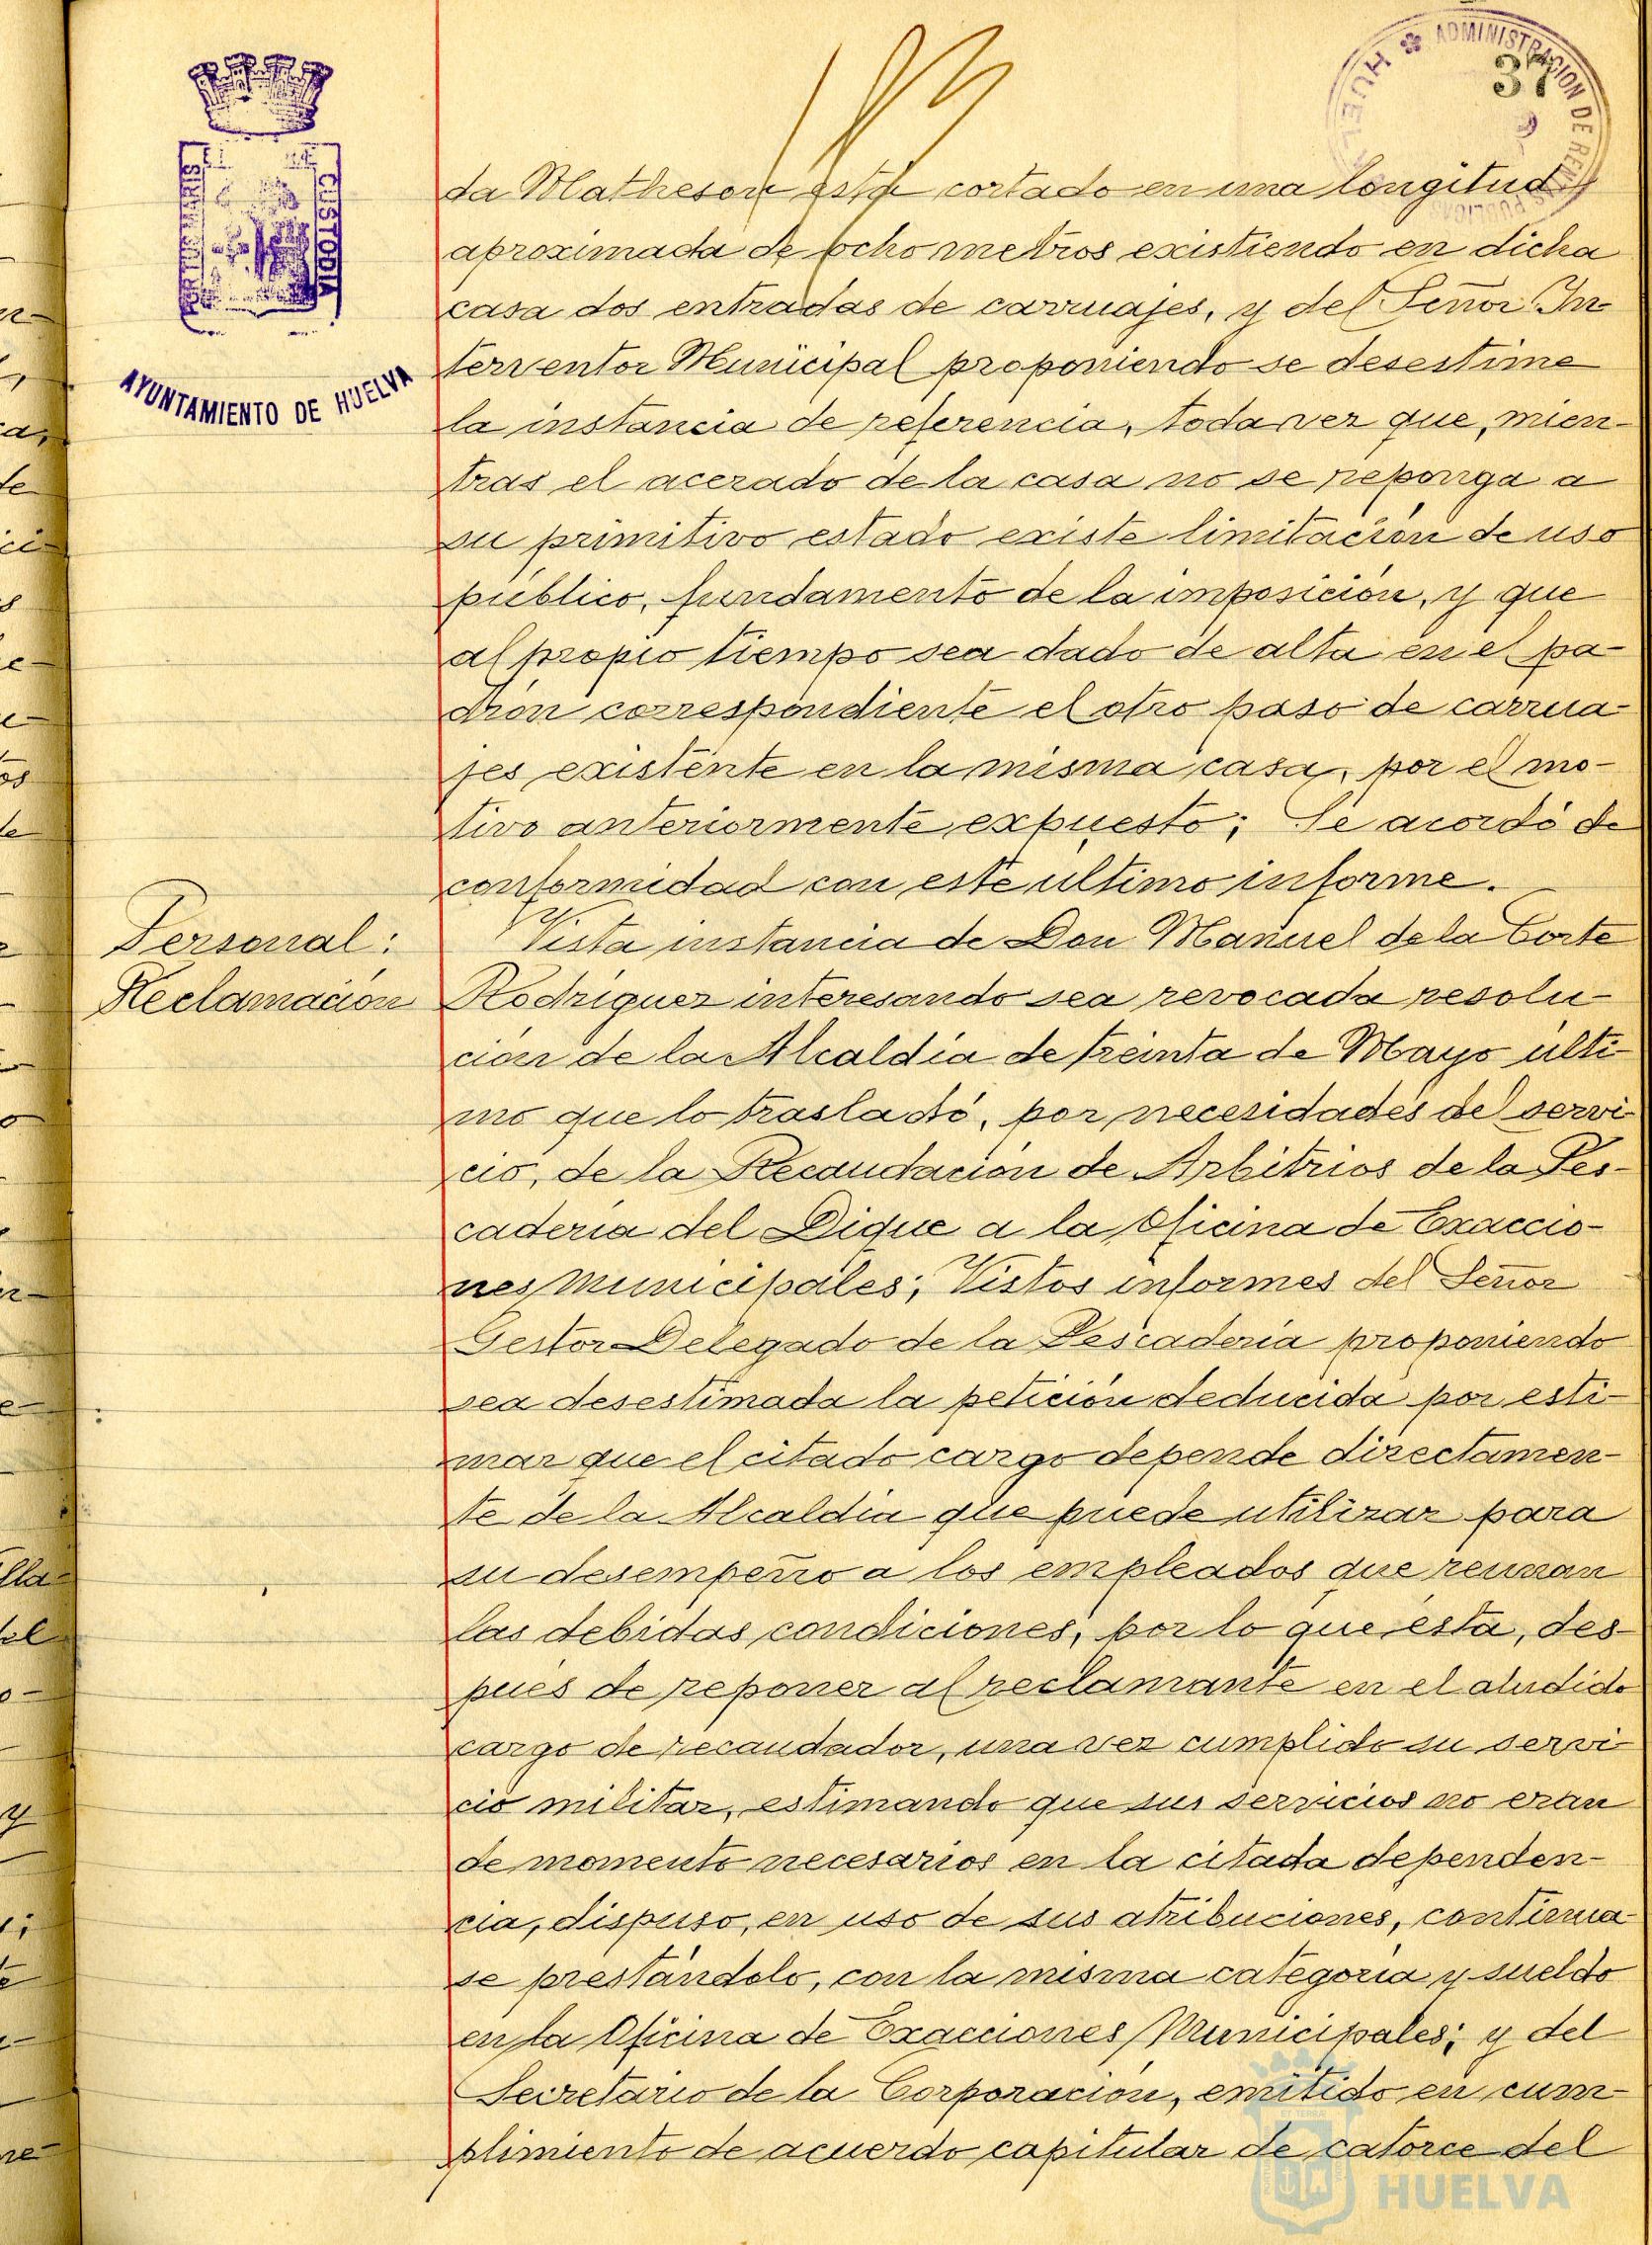 37
ADMINISTRACION DE RENTAS PUBLICAS
HUELVA
PORTUS MARIS
CUSTODIA
AYUNTAMIENTO DE HUELVA
da Matheson está cortado en una longitud
aproximada de ocho metros existiendo en dicha
casa dos entradas de carruajes, y del Señor In-
terventor Municipal proponiendo se desestime
la instancia de referencia, toda vez que, mien-
tras el acerado de la casa no se reponga a
su primitivo estado existe limitación de uso
público, fundamento de la imposición, y que
al propio tiempo sea dado de alta en el pa-
drón correspondiente el otro paso de carrua-
jes existente en la misma casa, por el mo-
tivo anteriormente expuesto; Se acordó de
conformidad con este ultimo informe.
Personal:
Reclamación
Vista instancia de Don Manuel de la Corte
Rodriguez interesando sea revocada resolu-
ción de la Alcaldía de treinta de Mayo últi-
mo que lo trasladó, por necesidades del servi-
cio, de la Recaudación de Arbitrios de la Pes-
cadería del Dique a la Oficina de Exaccio-
nes Municipales; Vistos informes del Señor
Gestor Delegado de la Pescadería proponiendo
sea desestimada la petición deducida por esti-
mar que el citado cargo depende directamen-
te de la Alcaldía que puede utilizar para
su desempeño a los empleados que reunan
las debidas condiciones, por lo que ésta, des-
pués de reponer al reclamante en el aludido
cargo de recaudador, una vez cumplido su servi-
cio militar, estimando que sus servicios no eran
de momento necesarios en la citada dependen-
cia, dispuso, en uso de sus atribuciones, continua-
se prestándolo, con la misma categoría y sueldo
en la Oficina de Exacciones Municipales; y del
Secretario de la Corporación, emitido en cum-
plimiento de acuerdo capitular de catorce del
HUELVA